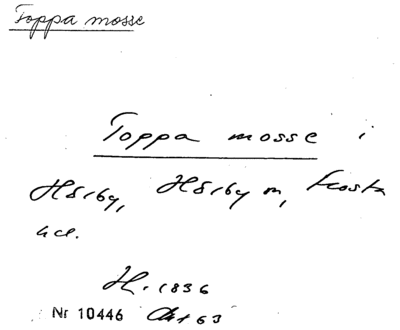 Toppa mosse
Toppa mosse i
Hörby, Hörby m, Frosta
hd.
H. 1836
Nr 10446 Akt 63